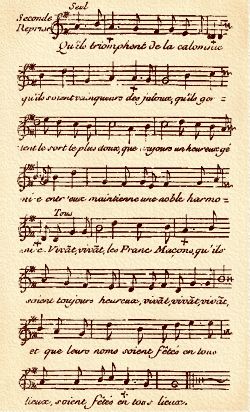 Seul
Seconde
Reprise
Qu'ils triomphent de la calomnie
qu'ils soient vainqueurs des jaloux, qu'ils goû-
tent le sort le plus doux, que toujours un heureux gé
ni-e entr'eux maintienne une noble harmo-
Tous
ni-e. Vivât, vivât, les Franc Maçons, qu'ils
soient toujours heureux, vivât, vivât, vivât,
et que leurs noms soient fêtés en tous
lieux, soient fêtés en tous lieux.